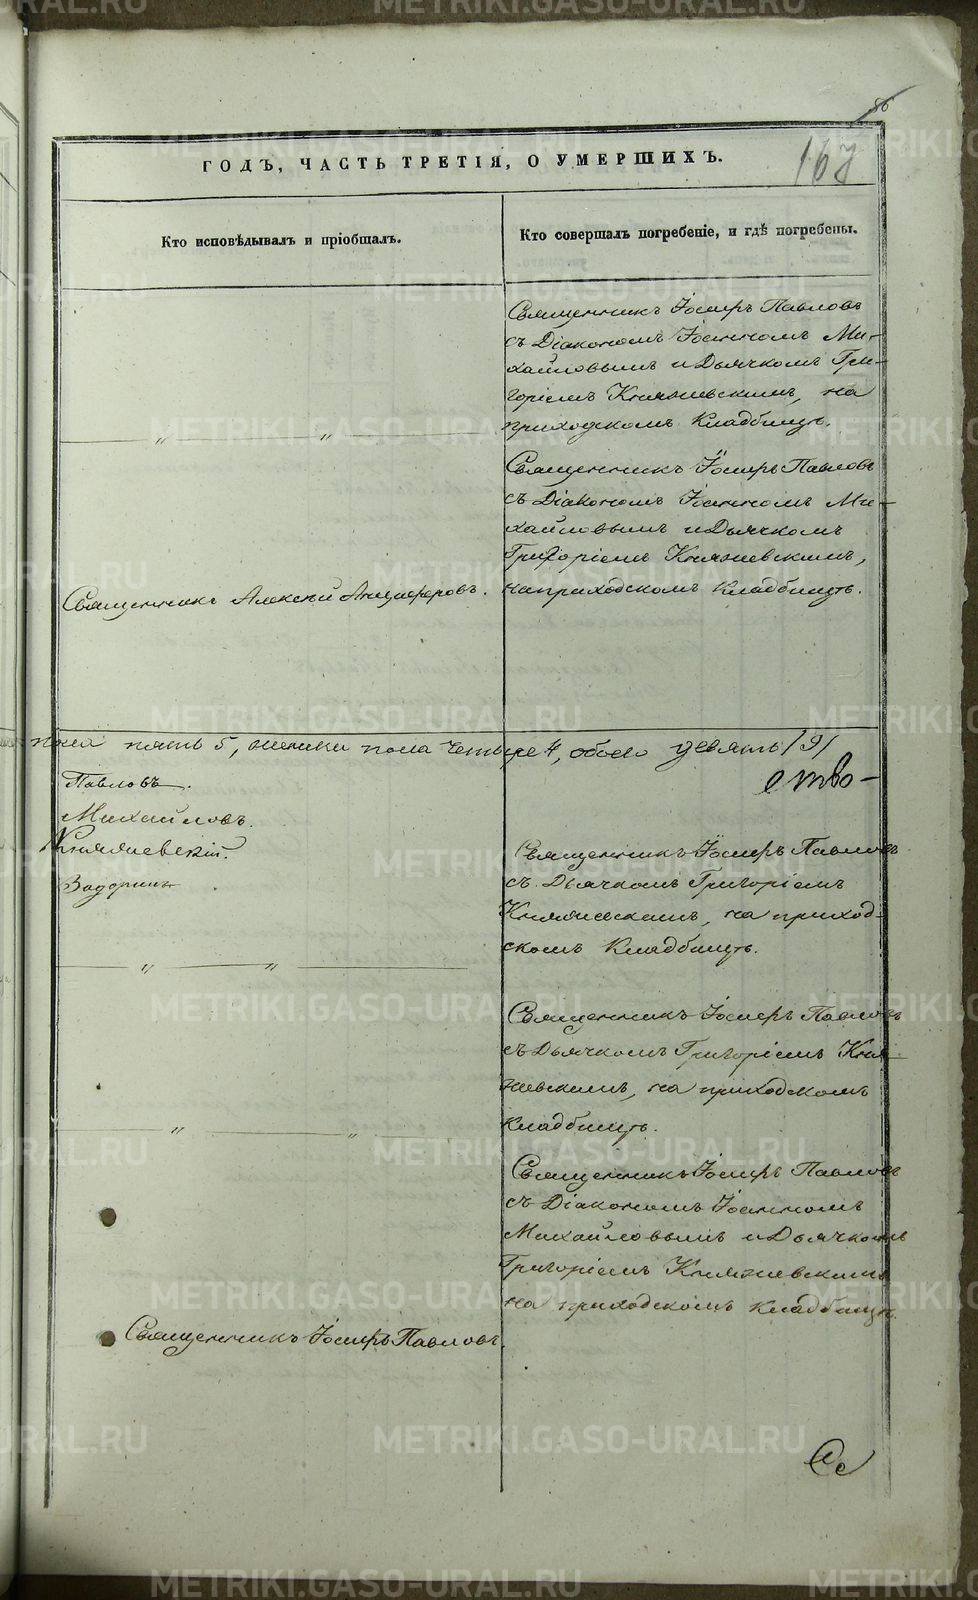 86
167
ГОДЪ, ЧАСТЬ ТРЕТІЯ, О УМЕРШИХЪ.
Кто исповѣдывалъ и пріобщалъ.
Кто совершалъ погребеніе, и гдѣ погребены.
Священникъ Іосифъ Павловъ
съ Діакономъ Іоанномъ Ми-
хайловымъ и Дьячкомъ Гри-
горіемъ Княжевскимъ, на
приходскомъ Кладбищѣ.
„ „
Священникъ Іосифъ Павловъ
съ Діакономъ Іоанномъ Ми-
хайловымъ и Дьячкомъ
Григоріемъ Княжевскимъ,
на приходскомъ Кладбищѣ.
Священникъ Алексѣй Анциферовъ.
пола пять 5, женска пола четыре 4, обоего девять /9/
Павловъ.
ство-
Михайловъ.
Княжевскій.
Священникъ Іосифъ Павловъ
съ Дьячкомъ Григоріемъ
Княжевскимъ, на приход-
скомъ Кладбищѣ.
„ „
Священникъ Іосифъ Павловъ
съ Дьячкомъ Григоріемъ Кня-
жевскимъ, на приходскомъ
кладбищѣ.
„ „
Священникъ Іосифъ Павловъ
съ Діакономъ Іоанномъ
Михайловымъ и Дьячкомъ
Григоріемъ Княжевскимъ
на приходскомъ кладбищѣ.
Священникъ Іосифъ Павловъ.
METRIKI.GASO-URAL.RU